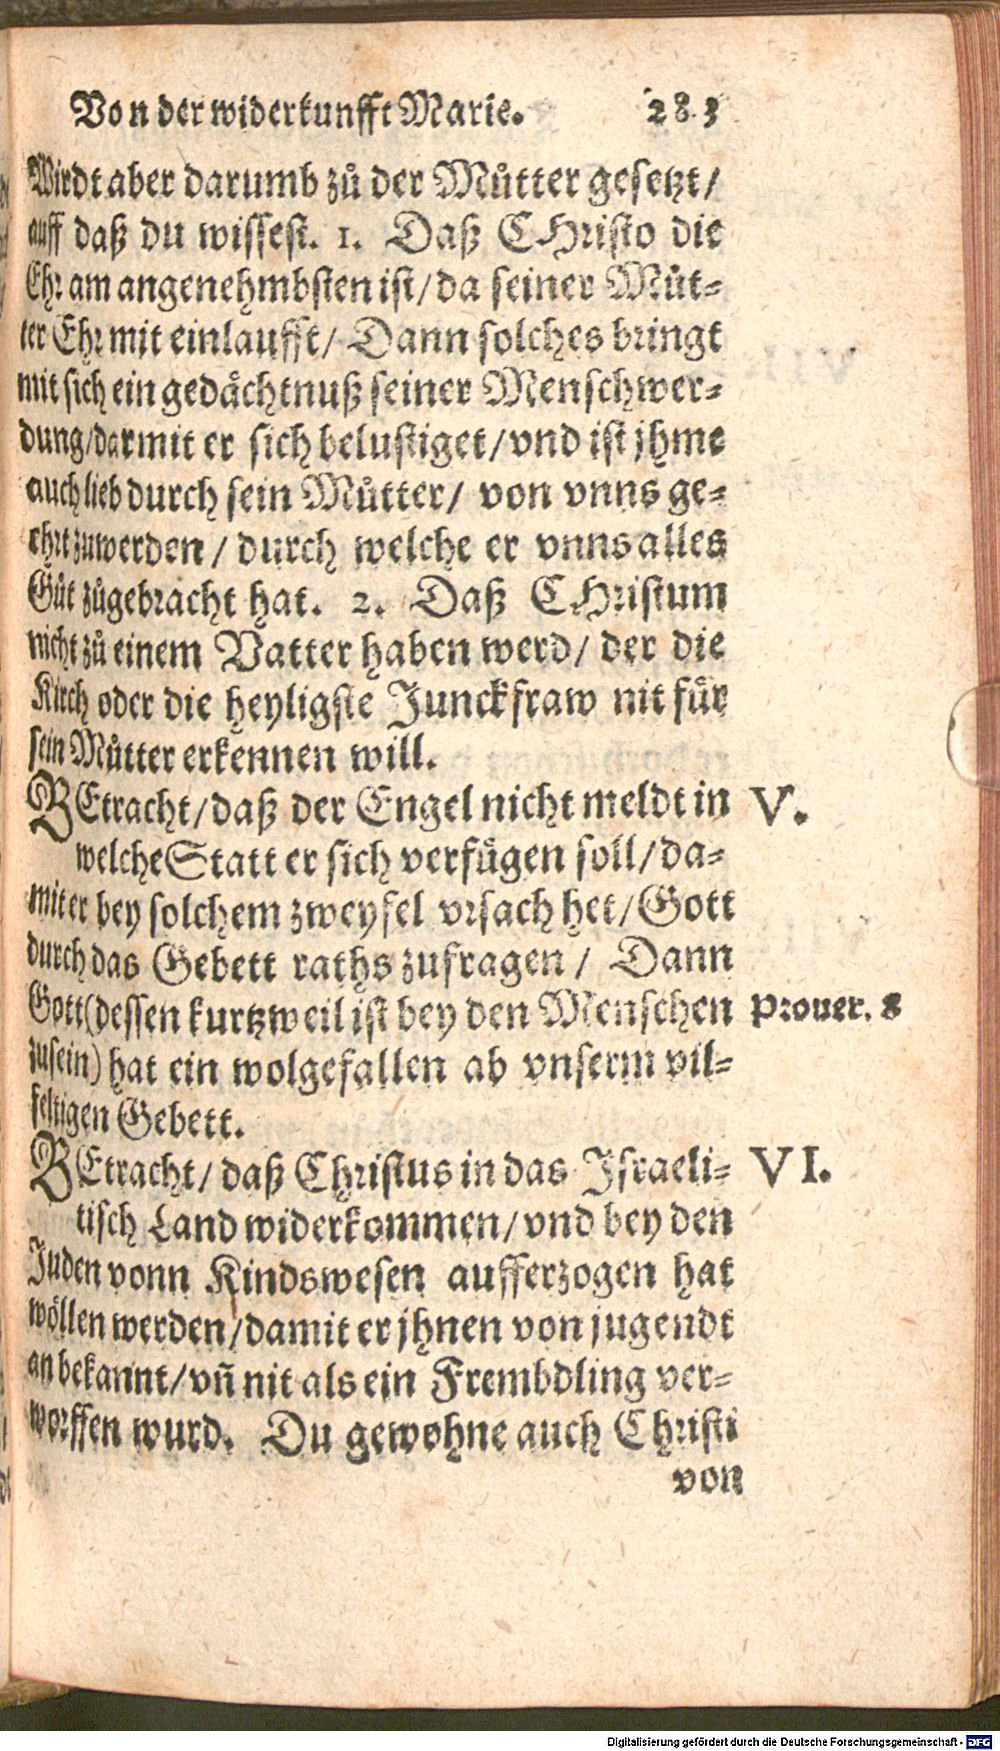 Von der widerkunfft Marie. 283
Wirdt aber darumb zů der Můtter gesetzt/
auff daß du wissest. 1. Daß CHristo die
Ehr am angenehmbsten ist/da seiner Můt-
ter Ehr mit einlaufft/ Dann solches bringt
mit sich ein gedächtnuß seiner Menschwer-
dung/darmit er sich belustiget/vnd ist jhme
auch lieb durch sein Můtter/ von vnns ge-
ehrt zuwerden/ durch welche er vnns alles
Gůt zůgebracht hat. 2. Daß CHristum
nicht zů einem Vatter haben werd/ der die
Kirch oder die heyligste Junckfraw nit für
sein Můtter erkennen will.
BEtracht/daß der Engel nicht meldt in V.
welche Statt er sich verfügen soll/da-
mit er bey solchem zweyfel vrsach het/Gott
durch das Gebett raths zufragen/ Dann
Gott (dessen kurtzweil ist bey den Menschen Prouer. 8
zusein) hat ein wolgefallen ab vnserm vil-
feltigen Gebett.
BEtracht/ daß Christus in das Israeli- VI.
tisch Land widerkommen/vnd bey den
Juden vonn Kindswesen aufferzogen hat
wöllen werden/damit er jhnen von jugendt
an bekannt/vñ nit als ein Frembdling ver-
worffen wurd. Du gewohne auch Christi
von
Digitalisierung gefördert durch die Deutsche Forschungsgemeinschaft - DFG